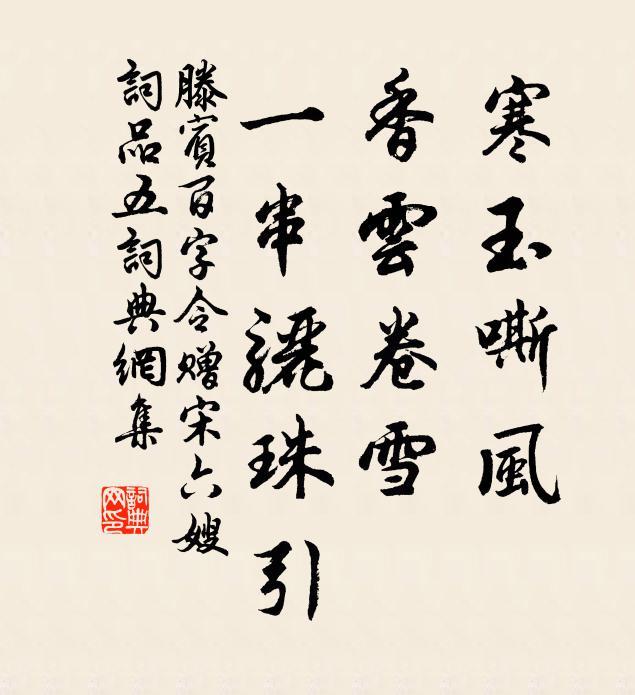 寒玉嘶風
香雲卷雪
一串驪珠引
滕賓百字令贈宋六嫂
詞品五詞典網集
詞典網印